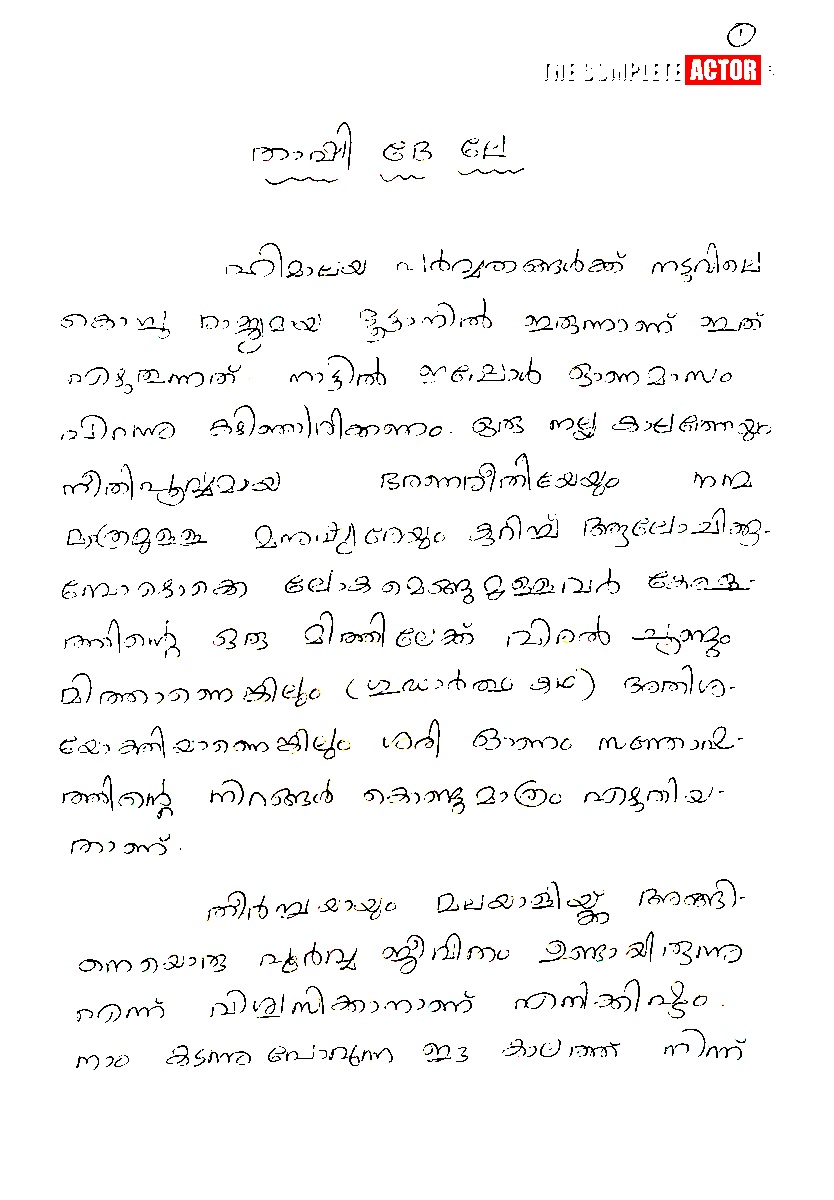 ൧
THE COMPLETE ACTOR
താഷി ദേ ലേ
ഹിമാലയ പർവ്വതങ്ങൾക്ക് നടുവിലെ
കൊച്ചു രാജ്യമായ ഭൂട്ടാനിൽ ഇരുന്നാണ് ഇത്
എഴുതുന്നത്. നാട്ടിൽ ഇപ്പോൾ ഓണമാസം
പിറന്നു കഴിഞ്ഞിരിക്കണം. ഒരു നല്ല കാലത്തെയും
നീതിപൂർവ്വമായ ഭരണരീതിയേയും നന്മ
മാത്രമുള്ള മനുഷ്യരേയും കുറിച്ച് ആലോചിക്കു-
മ്പോഴൊക്കെ ലോകമെങ്ങുമുള്ളവർ കേരള-
ത്തിന്റെ ഒരു മിത്തിലേക്ക് വിരൽ ചൂണ്ടും
മിത്താണെങ്കിലും ( ) അതിശ-
യോക്തിയാണെങ്കിലും ശരി ഓണം സന്തോഷ-
ത്തിന്റെ നിറങ്ങൾ കൊണ്ടു മാത്രം എഴുതിയ-
താണ്.
തീർച്ചയായും മലയാളിയ്ക്ക് അങ്ങി-
നെയൊരു പൂർവ്വ ജീവിതം ഉണ്ടായിരുന്നു
എന്ന് വിശ്വസിക്കാനാണ് എനിക്കിഷ്ടം.
നാം കടന്നു പോവുന്ന ഈ കാലത്ത് നിന്ന്